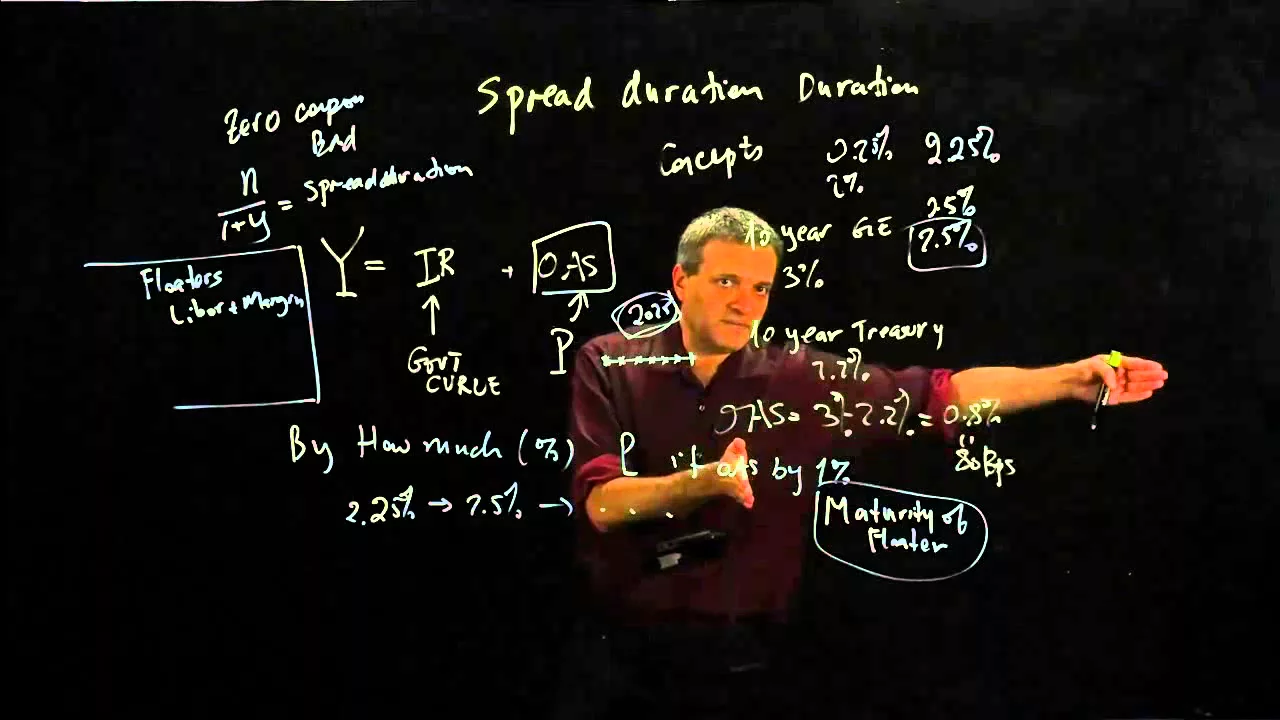 Spread duration Duration
Zero coupon
Bond
n
1+y
= spread duration
Concepts
0.25% 2.25%
2%
2.5%
2.5%
10 year GE
3%
Floaters
Libor + Margin
Y = IR + OAS
GOVT
CURVE
P
2025
10 year Treasury
2.2%
OAS = 3% - 2.2% = 0.8%
80 Bps
By How much (%) P if OAS by 1%
2.25% → 2.5% → . . .
Maturity of
Floater